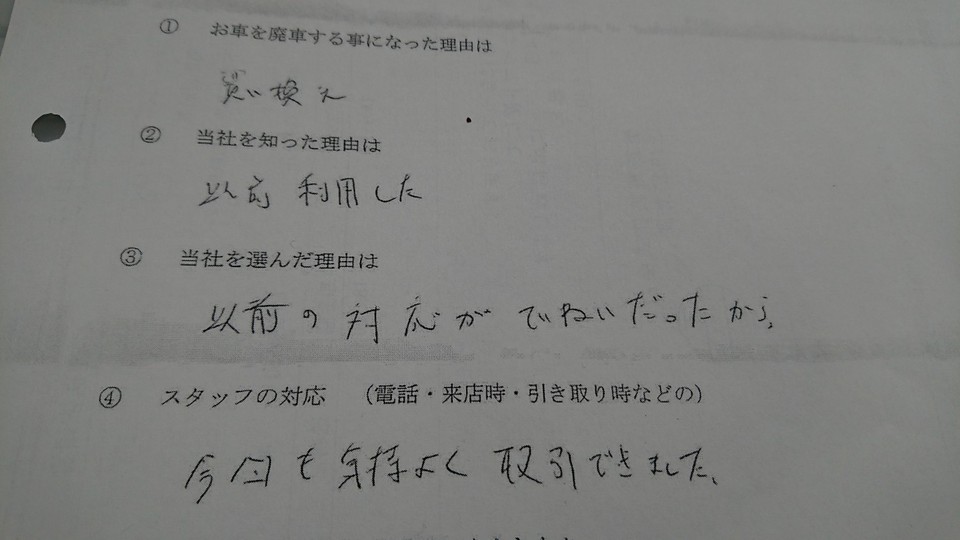 ① お車を廃車する事になった理由は
買い換え
② 当社を知った理由は
以前 利用した
③ 当社を選んだ理由は
以前の対応がていねいだったから、
④ スタッフの対応 (電話・来店時・引き取り時などの)
今回も気持よく取引できました、